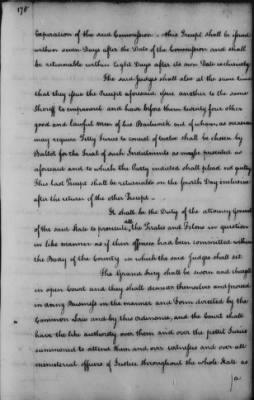 178
Expiration of the said Commission - this Precept shall be issued
within seven Days after the Date of the Commission and shall
be returnable within Eight Days after its own Date exclusively
The said Judges shall also at the same time
that they issue the Precept aforesaid issue another to the same
Sheriff to empannel and have before them twenty four other
good and lawful men of his Bailiwick out of whom, as occasion
may require Petty Juries to consist of twelve shall be chosen by
Ballot for the Trial of such Indictments as may be presented as
aforesaid and to which the Party indicted shall plead not guilty
This last Precept shall be returnable on the fourth Day inclusive
after the return of the other Precept.-
It shall be the Duty of the attorney General
of the said State to prosecute all the Pirates and Felons in question
in like manner as if their offences had been committed within
the Body of the County in which the said Judges shall set.
The Grand Jury shall be sworn and charged
in open Court and they shall demean themselves and proceed
in doing Business in the manner and Form directed by the
Common Law and by this ordinance, and the Court shall
have the like authority over them and over the petit Juries
summoned to attend them and over witnesses and over all
ministerial officers of Justice throughout the whole State as